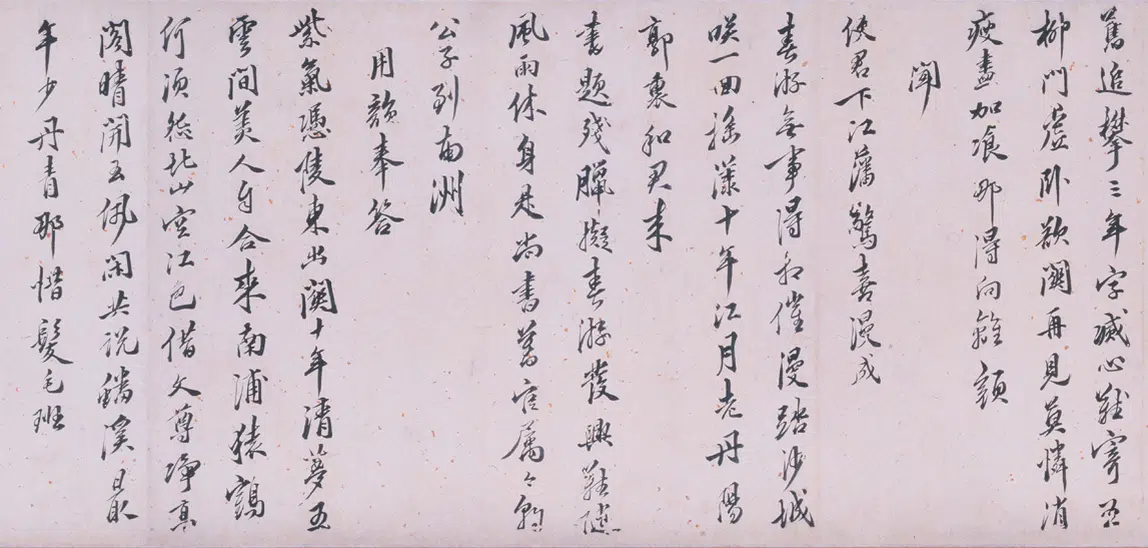 舊追攀三年字滅心難寄五
柳門虛臥欲關再見莫憐消
瘦盡加飡那得向離顏
聞
使君下江藩驚喜漫成
春游無事得相催漫踏沙城
咲一回搖漾十年江月老丹陽
郭裏和君來
書題殘臘擬春游發興難隨
風雨休身是尚書舊官屬
公子到南洲
用韻奉答
紫氣憑陵東出關十年清夢五
雲間美人自合來南浦猿鶴
何須怨北山空江色借文尊淨高
閣晴開玉佩閑共說磻溪最
年少丹青那惜鬢毛班